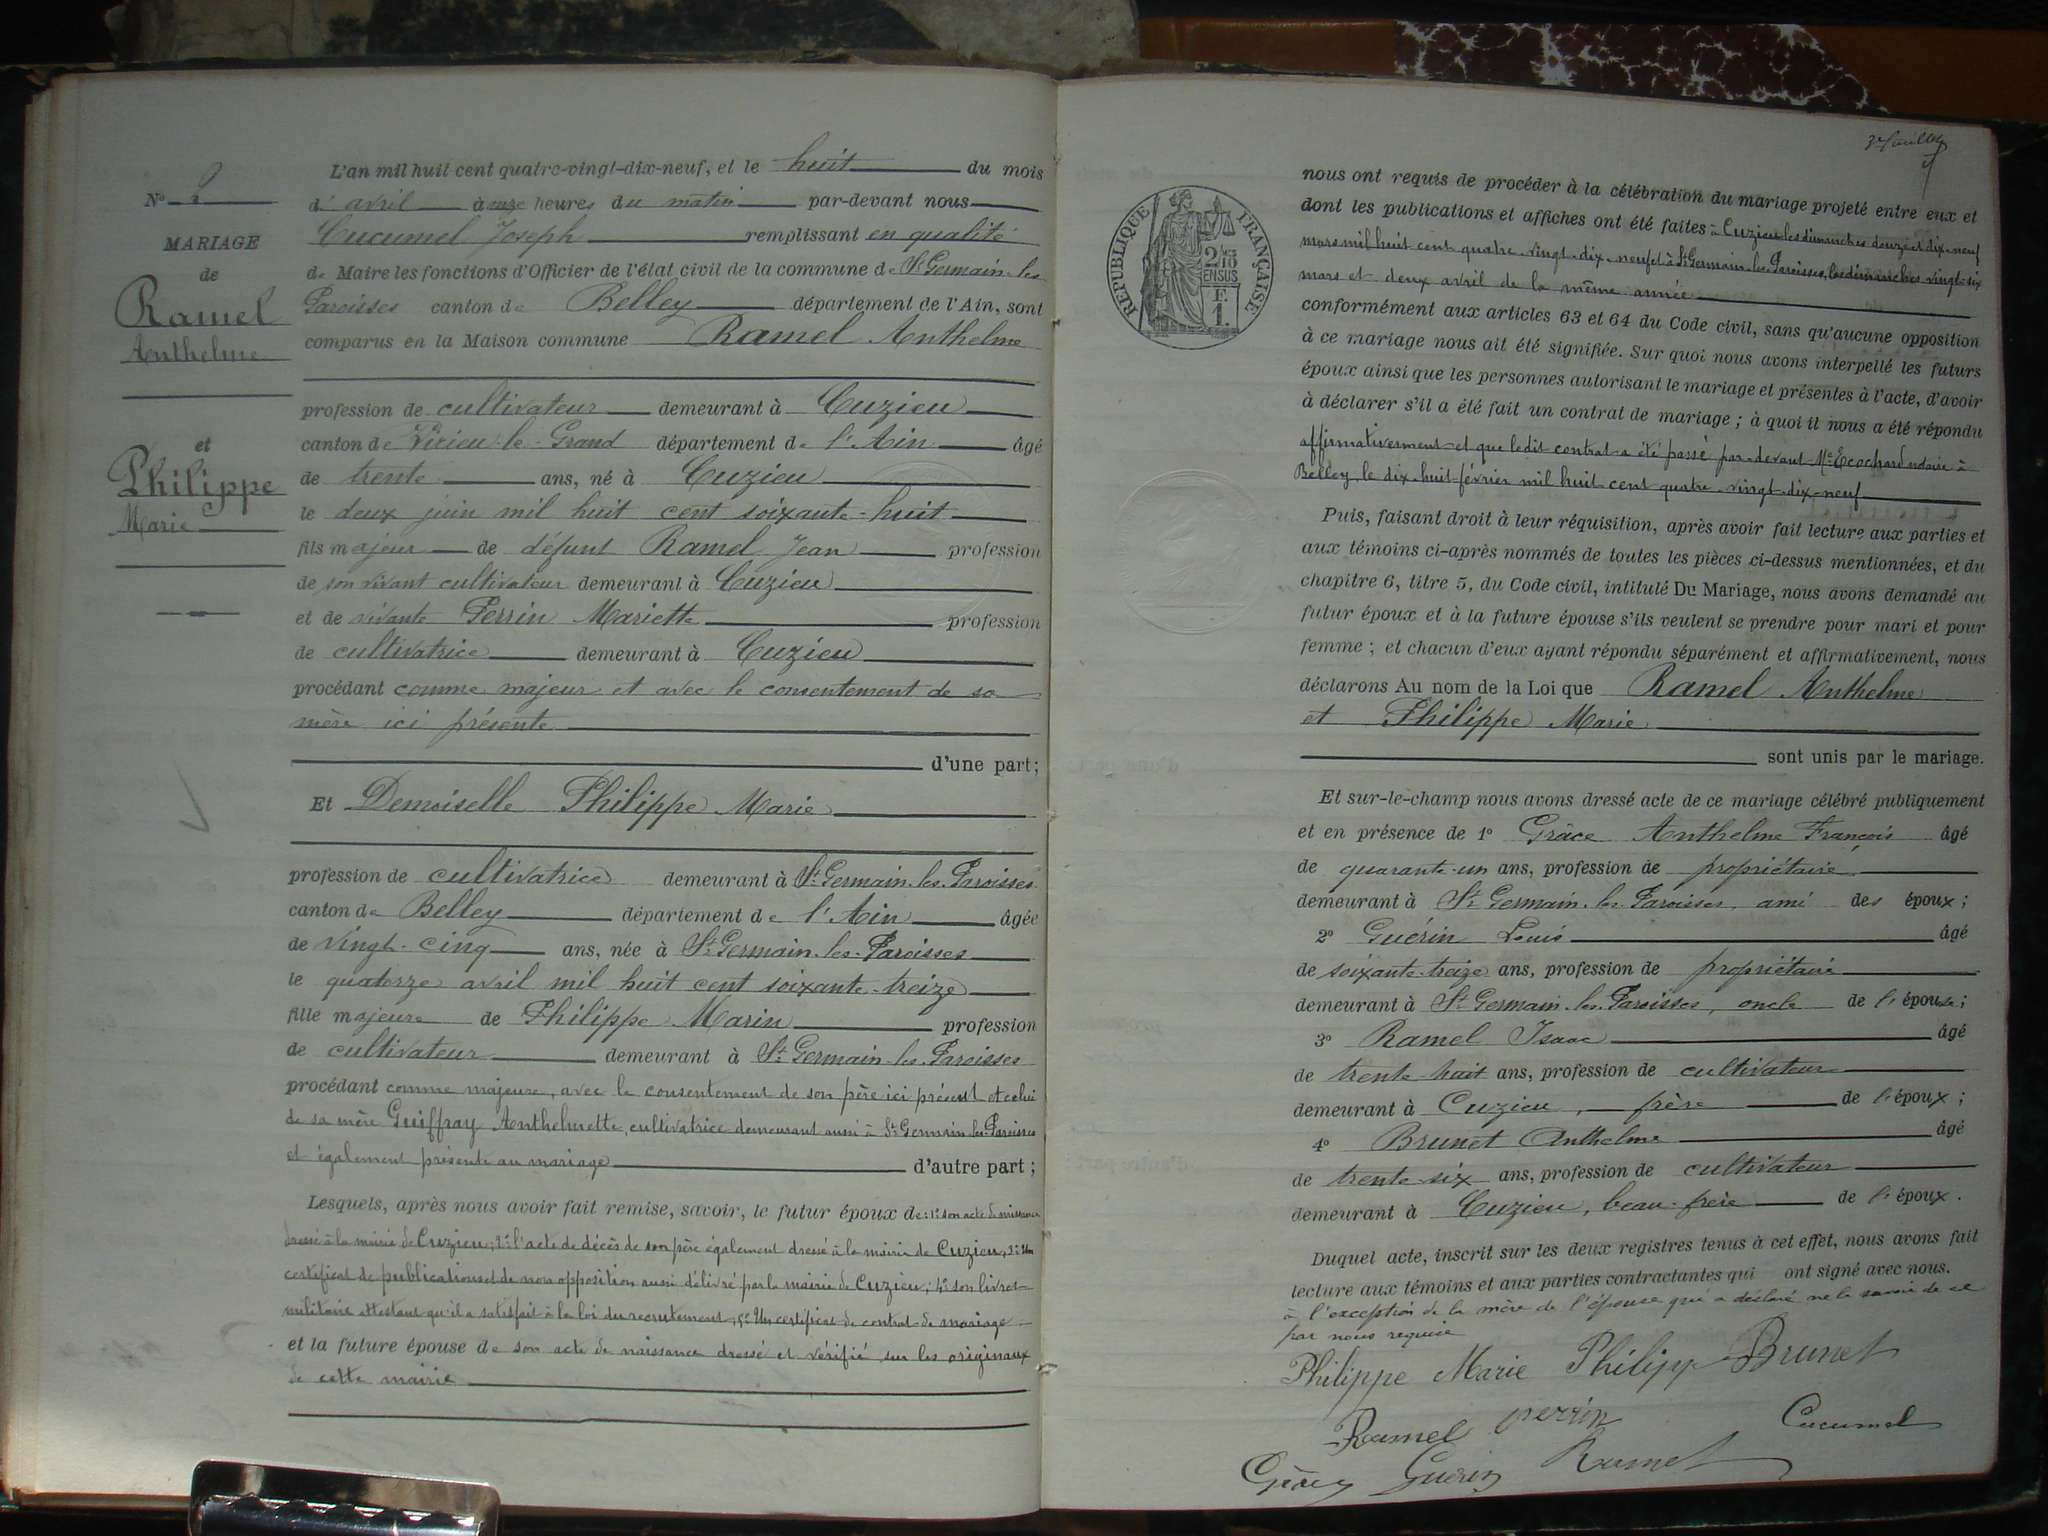 L'an mil huit cent quatre-vingt-dix-neuf, et le huit du mois
d'avril à onze heures du matin par-devant nous
Cucumel Joseph remplissant en qualité
de Maire les fonctions d'Officier de l'état civil de la commune de St Germain-les
Paroisses canton de Belley département de l'Ain, sont
comparus en la Maison commune Ramel Anthelme
profession de cultivateur demeurant à Cuzieu
canton de Virieu-le-Grand département de l'Ain âgé
de trente ans, né à Cuzieu
le deux juin mil huit cent soixante-huit
fils majeur de défunt Ramel Jean profession
de son vivant cultivateur demeurant à Cuzieu
et de vivante Perrin Mariette profession
de cultivatrice demeurant à Cuzieu
procédant comme majeur et avec le consentement de sa
mère ici présente
d'une part;
Et Demoiselle Philippe Marie
profession de cultivatrice demeurant à St Germain-les-Paroisses
canton de Belley département de l'Ain âgée
de vingt-cinq ans, née à St Germain-les-Paroisses
le quatorze avril mil huit cent soixante-treize
fille majeure de Philippe Marin profession
de cultivateur demeurant à St Germain-les-Paroisses
procédant comme majeure, avec le consentement de son père ici présent et celui
de sa mère Guiffray Anthelmette, cultivatrice demeurant aussi à St Germain-les-Paroisses
et également présente au mariage d'autre part;
Lesquels, après nous avoir fait remise, savoir, le futur époux de: 1° son acte de naissance
dressé à la mairie de Cuzieu; 2° l'acte de décès de son père également dressé à la mairie de Cuzieu, 3° Un
certificat de publications et de non opposition aussi délivré par la mairie de Cuzieu; 4° son livret
militaire attestant qu'il a satisfait à la loi du recrutement; 5° Un certificat de contrat de mariage
et la future épouse de son acte de naissance dressé et vérifié sur les originaux
de cette mairie
N° 2
MARIAGE
de
Ramel
Anthelme
et
Philippe
Marie
3e feuillet
RÉPUBLIQUE FRANÇAISE
2/10 EN SUS
F.
1.
nous ont requis de procéder à la célébration du mariage projeté entre eux et
dont les publications et affiches ont été faites à Cuzieu les dimanches douze et dix-neuf
mars mil huit cent quatre-vingt-dix-neuf et à St Germain-les-Paroisses, les dimanches vingt-six
mars et deux avril de la même année
conformément aux articles 63 et 64 du Code civil, sans qu'aucune opposition
à ce mariage nous ait été signifiée. Sur quoi nous avons interpellé les futurs
époux ainsi que les personnes autorisant le mariage et présentes à l'acte, d'avoir
à déclarer s'il a été fait un contrat de mariage; à quoi il nous a été répondu
affirmativement et que ledit contrat a été passé par-devant Me Ecochard notaire à
Belley, le dix-huit février mil huit cent quatre-vingt-dix-neuf
Puis, faisant droit à leur réquisition, après avoir fait lecture aux parties et
aux témoins ci-après nommés de toutes les pièces ci-dessus mentionnées, et du
chapitre 6, titre 5, du Code civil, intitulé Du Mariage, nous avons demandé au
futur époux et à la future épouse s'ils veulent se prendre pour mari et pour
femme; et chacun d'eux ayant répondu séparément et affirmativement, nous
déclarons Au nom de la Loi que Ramel Anthelme
et Philippe Marie
sont unis par le mariage.
Et sur-le-champ nous avons dressé acte de ce mariage célébré publiquement
et en présence de 1° Grâce Anthelme François âgé
de quarante-un ans, profession de propriétaire
demeurant à St Germain-les-Paroisses, ami des époux;
2° Guérin Louis âgé
de soixante-treize ans, profession de propriétaire
demeurant à St Germain-les-Paroisses, oncle de l'épouse;
3° Ramel Isaac âgé
de trente-huit ans, profession de cultivateur
demeurant à Cuzieu, frère de l'époux;
4° Brunet Anthelme âgé
de trente-six ans, profession de cultivateur
demeurant à Cuzieu, beau-frère de l'époux.
Duquel acte, inscrit sur les deux registres tenus à cet effet, nous avons fait
lecture aux témoins et aux parties contractantes qui ont signé avec nous.
à l'exception de la mère de l'épouse qui a déclaré ne le savoir de ce
par nous requise
Philippe Marie Philipp Brunet
Ramel perrin Cucumel
Grâce Guérin Ramel